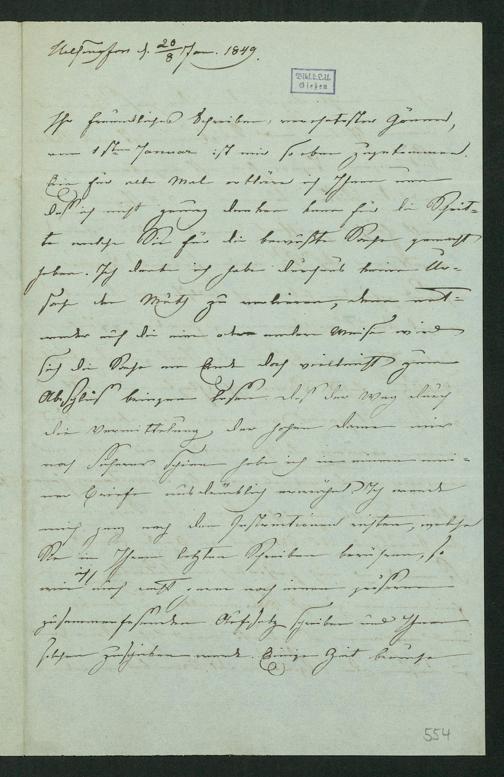 Helsingfors d. 20/8 Jan. 1849.
Bibl. d. L. U.
Gießen
Ihr freundliches Schreiben, verehrtester Gönner,
vom 1sten Januar ist mir soeben zugekommen.
Ein für alle Mal erkläre ich Ihnen nun
daß ich nicht genug danken kann für die Schrit-
te welche Sie für die bewußte Sache gemacht
haben. Ich denke ich habe durchaus keine Ur-
sache den Muth zu verlieren, denn ent-
weder auf die eine oder andere Weise wird
sich die Sache am Ende doch vielleicht zum
Abschluß bringen lassen. daß der Weg durch
die Vermittelung der hohen Dame mir
noch sicherer schien habe ich in einem mei-
ner Briefe ausdrücklich erwähnt. Ich werde
mich ganz nach den Instructionen richten, welche
Sie in Ihrem letzten Schreiben berühren, so
wie ich auch erst noch einen größeren
zusammenfassenden Aufsatz schreiben und Ihnen
solchen zuschicken werde. Einige Zeit brauche
554